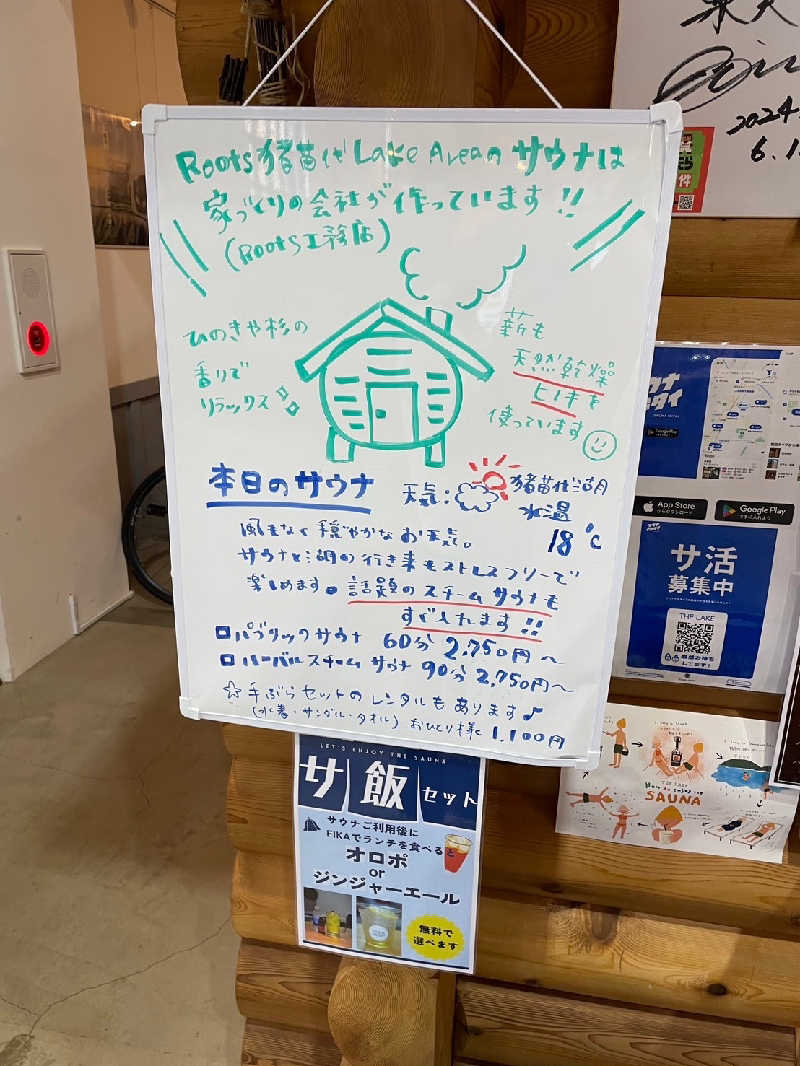 Roots猪苗代 Lake Areaの サウナは
家づくりの会社が作っています!!
(Roots工務店)
ひのきや杉の
香りで
リラックス
薪も
天然乾燥
ヒノキを
使っています
本日のサウナ
天気:
猪苗代湖
水温
18℃
風もなく穏やかなお天気。
サウナと湖の行き来もストレスフリーで
楽しめます。話題のスチームサウナも
すぐ入れます!!
パブリックサウナ 60分 2,750円〜
ハーバルスチームサウナ 90分 2,750円〜
☆手ぶらセットのレンタルもあります♪
(水着・サンダル・タオル) おひとり様 1,100円
LET'S ENJOY THE SAUNA
サ飯セット
サウナご利用後に
FIKAでランチを食べると
オロポ
or
ジンジャーエール
無料で
選べます
2024.
App Store
Google Play
サ活
募集中
THE LAKE
SAUNA